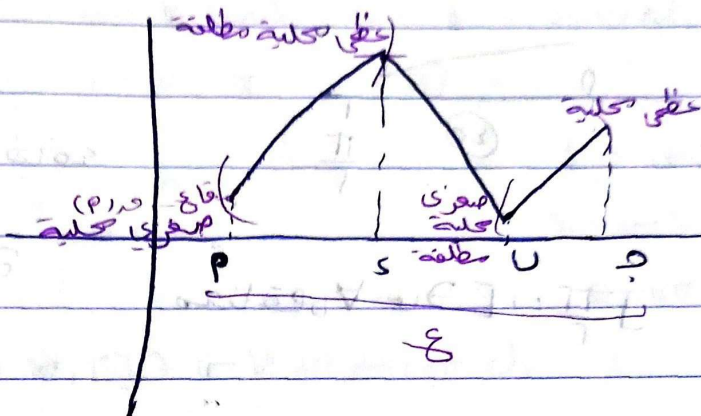 عظمى محلية مطلقة
عظمى محلية
قاع ق(م)
صغرى محلية
صغرى
محلية
مطلقة
م د ب جـ
ع